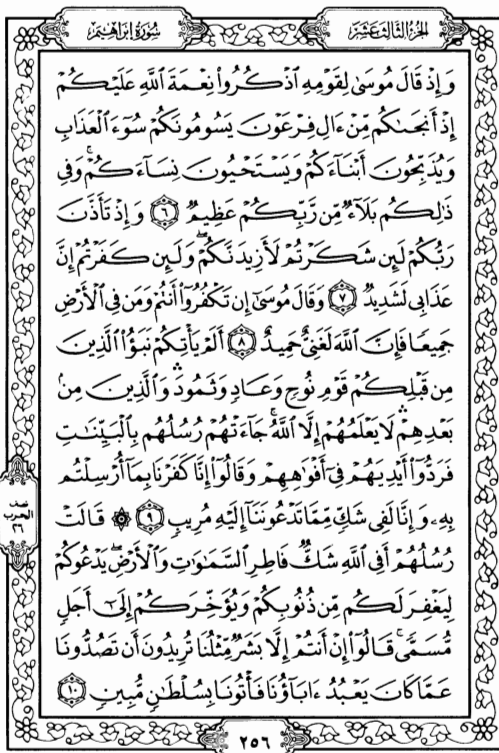 الجزء الثالث عشر
سورة إبراهيم
وَإِذْ قَالَ مُوسَىٰ لِقَوْمِهِ ٱذْكُرُوا۟ نِعْمَةَ ٱللَّهِ عَلَيْكُمْ
إِذْ أَنجَىٰكُم مِّنْ ءَالِ فِرْعَوْنَ يَسُومُونَكُمْ سُوٓءَ ٱلْعَذَابِ
وَيُذَبِّحُونَ أَبْنَآءَكُمْ وَيَسْتَحْيُونَ نِسَآءَكُمْ ۚ وَفِى
ذَٰلِكُم بَلَآءٌ مِّن رَّبِّكُمْ عَظِيمٌ ٦ وَإِذْ تَأَذَّنَ
رَبُّكُمْ لَئِن شَكَرْتُمْ لَأَزِيدَنَّكُمْ ۖ وَلَئِن كَفَرْتُمْ إِنَّ
عَذَابِى لَشَدِيدٌ ٧ وَقَالَ مُوسَىٰٓ إِن تَكْفُرُوٓا۟ أَنتُمْ وَمَن فِى ٱلْأَرْضِ
جَمِيعًا فَإِنَّ ٱللَّهَ لَغَنِىٌّ حَمِيدٌ ٨ أَلَمْ يَأْتِكُمْ نَبَؤُا۟ ٱلَّذِينَ
مِن قَبْلِكُمْ قَوْمِ نُوحٍ وَعَادٍ وَثَمُودَ ۛ وَٱلَّذِينَ مِنۢ
بَعْدِهِمْ ۛ لَا يَعْلَمُهُمْ إِلَّا ٱللَّهُ ۚ جَآءَتْهُمْ رُسُلُهُم بِٱلْبَيِّنَٰتِ
فَرَدُّوٓا۟ أَيْدِيَهُمْ فِىٓ أَفْوَٰهِهِمْ وَقَالُوٓا۟ إِنَّا كَفَرْنَا بِمَآ أُرْسِلْتُم
بِهِۦ وَإِنَّا لَفِى شَكٍّ مِّمَّا تَدْعُونَنَآ إِلَيْهِ مُرِيبٍ ٩ ۞ قَالَتْ
رُسُلُهُمْ أَفِى ٱللَّهِ شَكٌّ فَاطِرِ ٱلسَّمَٰوَٰتِ وَٱلْأَرْضِ ۖ يَدْعُوكُمْ
لِيَغْفِرَ لَكُم مِّن ذُنُوبِكُمْ وَيُؤَخِّرَكُمْ إِلَىٰٓ أَجَلٍ
مُّسَمًّى ۚ قَالُوٓا۟ إِنْ أَنتُمْ إِلَّا بَشَرٌ مِّثْلُنَا تُرِيدُونَ أَن تَصُدُّونَا
عَمَّا كَانَ يَعْبُدُ ءَابَآؤُنَا فَأْتُونَا بِسُلْطَٰنٍ مُّبِينٍ ١٠
نصف
الحزب
٢٦
٢٥٦